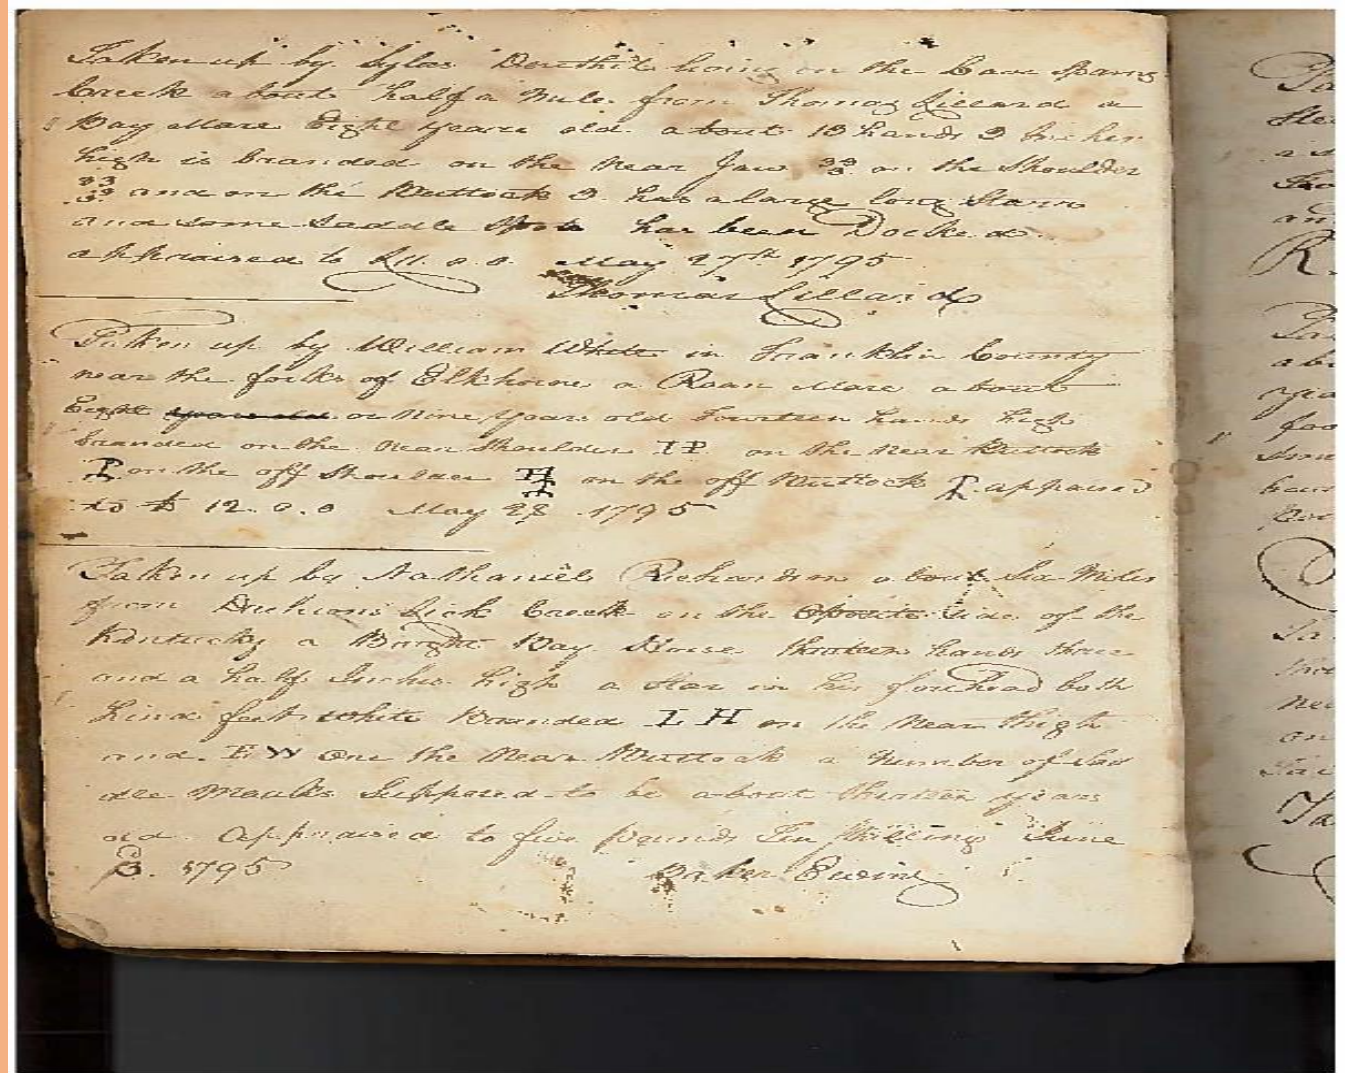 Taken up by Sylas Douthit living on the Cave Spring
Creek about half a mile from Thomas Lillard a
Bay Mare Eight years old about 13 hands 3 Inches
high is branded on the near Jaw 33 on the Shoulder
33 and on the Buttock 3 has a large long Starr
and some Saddle Spots has been Docked
appraised to £11.0.0 May 27th 1795
Thomas Lillard
Taken up by William White in Franklin County
near the forks of Elkhorne a Roan Mare about
Eight years old or Nine years old Fourteen hands high
branded on the near Shoulder IP on the near Buttock
P on the off Shoulder on the off Buttock P appraised
to £ 12.0.0 May 28 1795
Taken up by Nathaniel Richardson about Six Miles
from Lick Creek on the side of the
Kentucky a Bright Bay Horse thirteen hands three
and a half Inches high a Star in his forehead both
hind feet white Branded I H on the near thigh
and EW One the Near Buttock a Number of Sad
dle Marks Supposed to be about thirteen years
old Appraised to five pounds Ten Shillings June
3. 1795 Baker Ewing